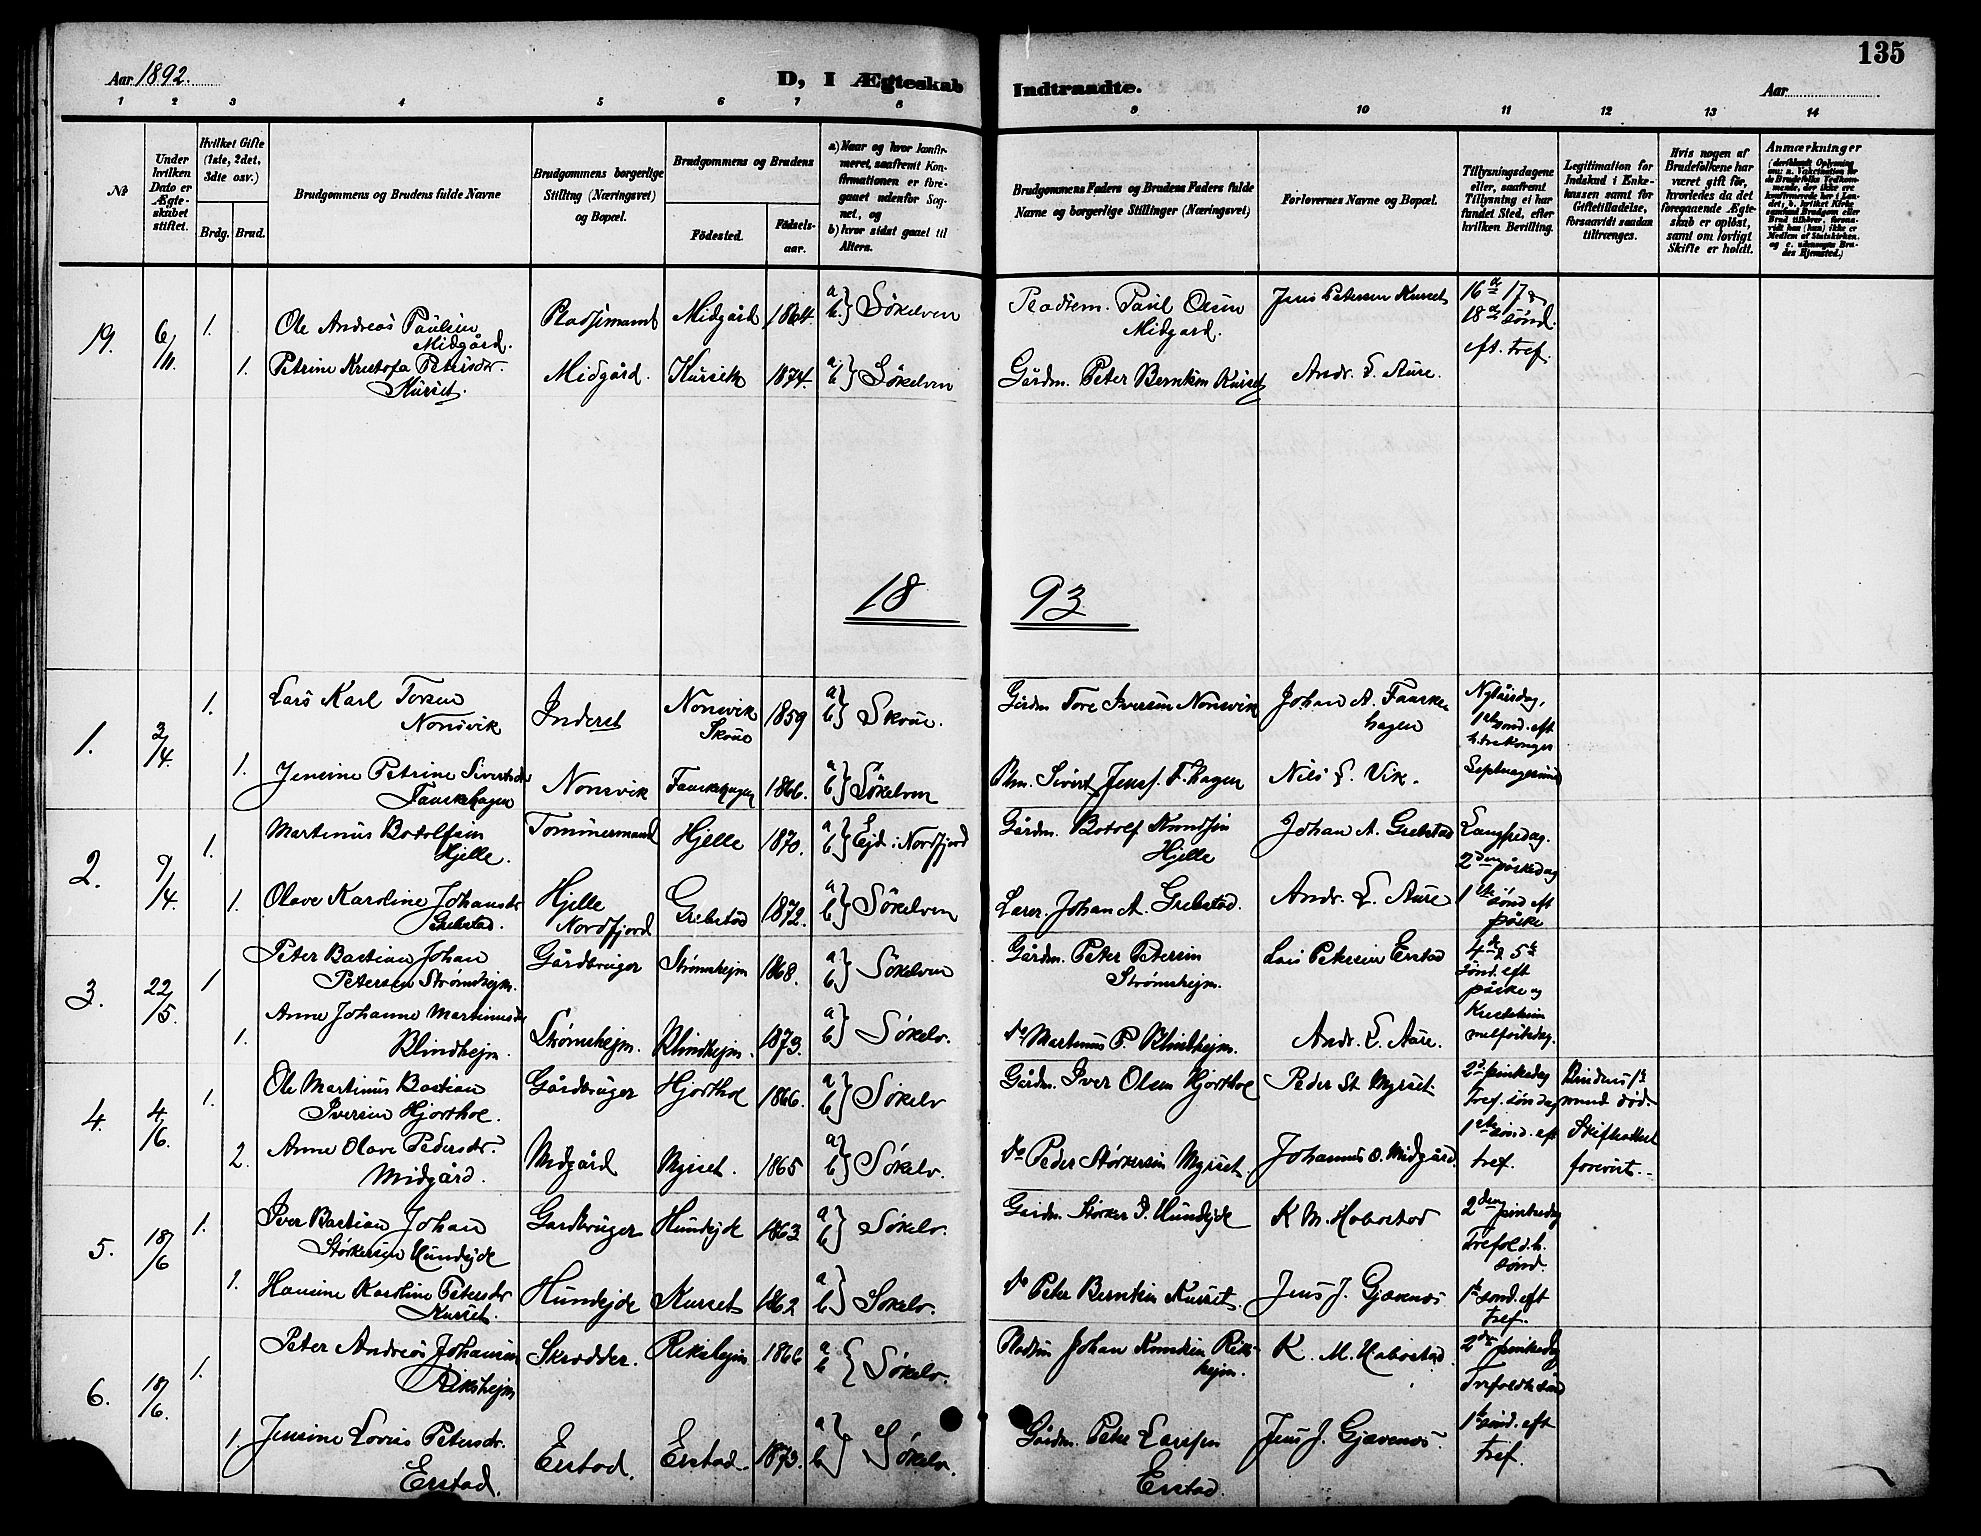 135
Aar 1892.
D, I Ægteskab Indtraadte.
Aar
1 2 3 4 5 6 7 8 9 10 11 12 13 14
No
Under hvilken Dato er Ægteskabet stiftet.
Hvilket Gifte (1ste, 2det, 3die osv.)
Brdg. Brud.
Brudgommens og Brudens fulde Navne
Brudgommens borgerlige Stilling (Næringsvei) og Bopæl.
Brudgommens og Brudens
Fødested.
Fødselsaar.
a) Naar og hvor konfirmeret, saafremt Konfirmationen er foregaaet udenfor Sognet, og
b) hvor sidst gaaet til Alters.
Brudgommens Faders og Brudens Faders fulde Navne og borgerlige Stillinger (Næringsvei)
Forlovernes Navne og Bopæl.
Tillysningsdagene eller, saafremt Tillysning ei har fundet Sted, efter hvilken Bevilling.
Legitimation for Indskud i Enkekassen samt for Giftetilladelse, forsaavidt saadan tiltrænges.
Hvis nogen af Brudefolkene har været gift før, hvorledes da det foregaaende Ægteskab er opløst, samt om lovligt Skifte er holdt.
Anmærkninger
19. 6/11. 1. Ole Andreas Paulsen Midgård. Pladsemand Midgård 1864. a b } Søkelven
Pladsem. Paul Olsen Midgard. Jens Petersen Kurset 16de 17de 18de sønd. eft. tref.
1. Petrine Kristofa Petersdr. Kurset. Midgård. Kurseth 1874. a b } Søkelven
Gårdm. Peter Berntsen Kurset Andr. L. Aure.
18 93
1. 3/4. 1. Lars Karl Torsen Nonsvik Inderst Nonsvik Skoue 1859 a b } Skoue.
Gårdm Tore Iversen Nonsvik Johan A. Faurskhagen Nytårsdag, 1ste sønd. eft h. trekonger
1. Jensine Petrine Sivertsdr Faurskhagen Nonsvik Faurskhagen 1866. a b } Søkelven
Plm. Sivert Jens. F.hagen Nils L. Vik. Septuagesima
2. 9/4. 1. Martinus Botolfsen Hjelle. Tømmermand Hjelle 1870. a b } Ejd i Nordfjord
Gårdm. Botolf Hjelle Johan A. Grebstad Langfredag. 2den påskedag
1. Olave Karoline Johansdr Grebstad. Hjelle Nordfjord Grebstad 1872. a b } Søkelven
Lærer. Johan A. Grebstad. Andr. L. Aure 1ste sønd eft påske
3. 22/5. 1 Peter Bastian Johan Petersen Strømshejm. Gårdbruger Strømshejm 1868. a b } Søkelven
Gårdm. Peter Petersen Strømshejm. Lars Petersen Erstad 4de & 5te sønd. eft påske og
1. Anne Johanne Martinusdr Blindhejm. Strømshejm. Blindhejm. 1873. a b } Søkelv.
do Martinus P. Blindhejm. Andr. L. Aure. Kristi himmelfartsdag.
4. 4/6. 1. Ole Martinus Bastian Iversen Hjorthol. Gårdbruger Hjorthol 1866. a b } Søkelv
Gårdm. Iver Olsen Hjorthol Peder St. Myrset. 2d pinsedag Tref. søndag Brudens 1ste mand død.
2. Anne Olave Pedersdr. Midgård. Midgård Myrset. 1865 a b } Søkelv.
do Peder Størkersen Myrset. Johannes O. Midgård. 1ste sønd. eft tref. Skifteattest forevist.
5. 18/6 1. Iver Bastian Johan Størkersen Hundejde Gardbruger Hundejde 1863 a b } Søkelv.
Gardm. Størker I. Hundejde K M. Habostad 2den pinsedag Trefold.h. sønd.
1. Hansine Karoline Petersdr Kurset. Hundejde Kurset 1862 a b } Søkelv.
do Peter Berntsen Kurset. Jens J. Gjævenes 1ste sønd. eft tref.
6. 18/6. 1. Peter Andreas Johansen Rikshejm Skrædder. Rikshejm 1866 a b { Søkelv.
Pladsm Johan Knudsen Rikshejm. K. M. Habostad. 2den pinsedag Trefoldh sønd
1 Jensine Lovise Petersdr. Erstad. Erstad. Erstad. 1873. a b } Søkelv.
Gårdm. Peter Larssen Erstad. Jens J. Gjævenes. 1ste sønd. eft tref.